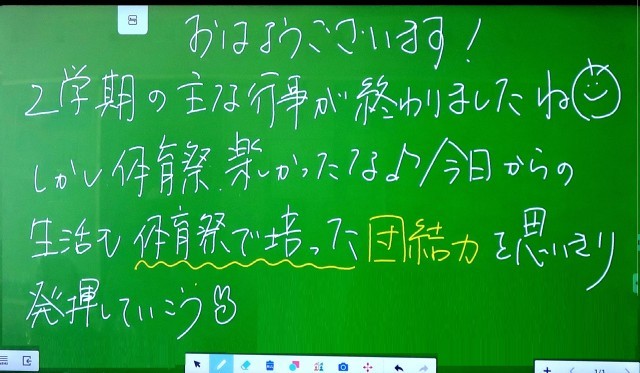 おはようございます!
2学期の主な行事が終わりましたね
しかし体育祭、楽しかったなぁ♪今日からの
生活も体育祭で培った団結力を思いきり
発揮していこう
1/1